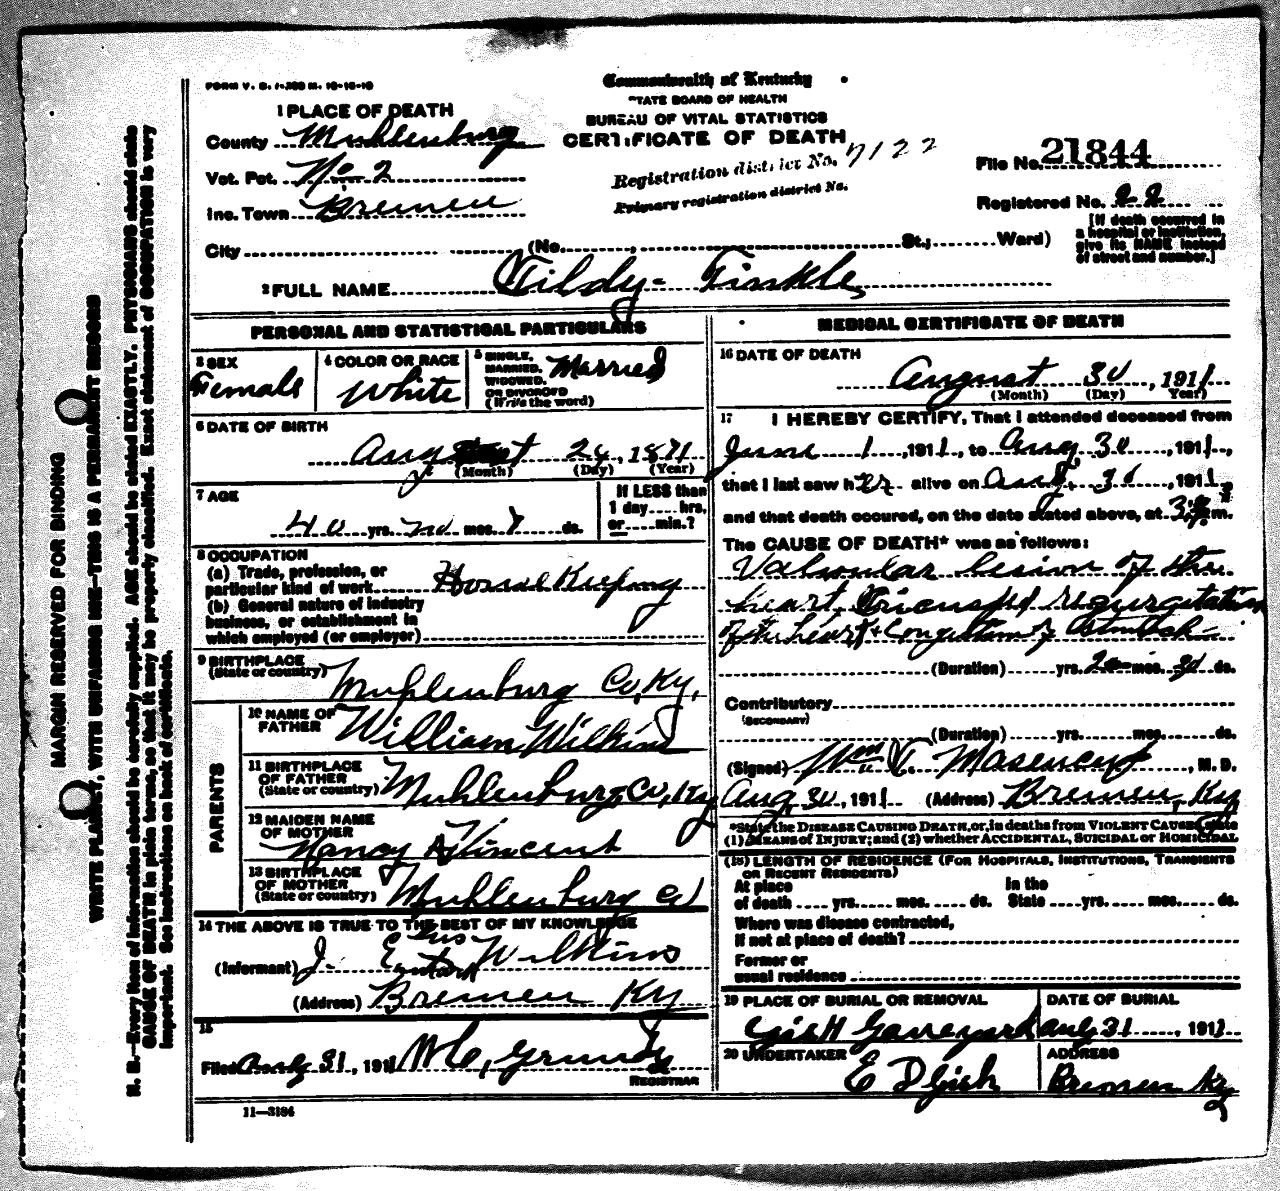 FORM V. S. 1-200 M. 10-18-10
Commonwealth of Kentucky
STATE BOARD OF HEALTH
BUREAU OF VITAL STATISTICS
CERTIFICATE OF DEATH
1 PLACE OF DEATH
County Muhlenburg
Vot. Pct. No. 2
Inc. Town Bremen
City (No. , St.; Ward)
Registration district No. 7122
Primary registration district No.
File No. 21844
Registered No. 22
[If death occurred in
a hospital or institution,
give its NAME instead
of street and number.]
2 FULL NAME Tildy- Finkle
PERSONAL AND STATISTICAL PARTICULARS
3 SEX
Female
4 COLOR OR RACE
White
5 SINGLE,
MARRIED,
WIDOWED,
OR DIVORCED
(Write the word)
Married
6 DATE OF BIRTH
August 24, 1871
(Month) (Day) (Year)
7 AGE
40 yrs. no mos. 7 ds.
If LESS than
1 day.... hrs.
or .... min.?
8 OCCUPATION
(a) Trade, profession, or
particular kind of work House Keeping
(b) General nature of industry
business, or establishment in
which employed (or employer)
9 BIRTHPLACE
(State or country)
Muhlenburg Co, Ky,
PARENTS
10 NAME OF
FATHER
William Wilkins
11 BIRTHPLACE
OF FATHER
(State or country)
Muhlenburg, Co, Ky
12 MAIDEN NAME
OF MOTHER
Nancy A Vincent
13 BIRTHPLACE
OF MOTHER
(State or country)
Muhlenburg Co
14 THE ABOVE IS TRUE TO THE BEST OF MY KNOWLEDGE
(Informant) J. Wilkins
(Address) Bremen Ky
15
Filed Aug 31, 1911 W C, Grundy
REGISTRAR
11-3184
MEDICAL CERTIFICATE OF DEATH
16 DATE OF DEATH
August 30, 1911
(Month) (Day) Year)
17 I HEREBY CERTIFY, That I attended deceased from
June 1, 1911, to Aug 30, 1911,
that I last saw her alive on Aug, 30, 1911,
and that death occured, on the date stated above, at m.
The CAUSE OF DEATH* was as follows:
Valvular lesion of the
heart, Tricuspid regurgitation
of the heart + Congestion of
(Duration) yrs. 2 mos. 30 ds.
Contributory
(SECONDARY)
(Duration) yrs. mos. ds.
(Signed) Wm T. , M. D.
Aug 30, 1911 (Address) Bremen, Ky
*State the DISEASE CAUSING DEATH, or, in deaths from VIOLENT CAUSES, state
(1) MEANS of INJURY; and (2) whether ACCIDENTAL, SUICIDAL or HOMICIDAL
(18) LENGTH OF RESIDENCE (FOR HOSPITALS, INSTITUTIONS, TRANSIENTS
OR RECENT RESIDENTS)
At place
of death .... yrs. mos. ds.
In the
State .... yrs. mos. ds.
Where was disease contracted,
if not at place of death?
Former or
usual residence
19 PLACE OF BURIAL OR REMOVAL
Gish Graveyard
DATE OF BURIAL
Aug 31, 1911
20 UNDERTAKER
E D Gish
ADDRESS
Bremen Ky
MARGIN RESERVED FOR BINDING
WRITE PLAINLY, WITH UNFADING INK—THIS IS A PERMANENT RECORD
N. B.—Every item of information should be carefully supplied. AGE should be stated EXACTLY. PHYSICIANS should state
CAUSE OF DEATH in plain terms, so that it may be properly classified. Exact statement of OCCUPATION is very
important. See instructions on back of certificate.